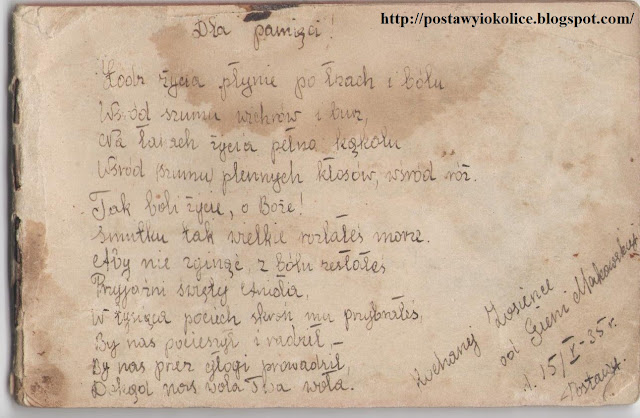 http://postawyiokolice.blogspot.com/
Dla pamięci!
Łódź życia płynie po łzach i bólu
Wśród szumu wichrów i burz,
Na łanach życia pełna kąkolu
Wśród szumu plennych kłosów, wśród róż.
Tak boli życie, o Boże!
Smutku tak wielkie rozlałeś morze.
Aby nie zginąć, z bólu zesłałeś
Przyjaźni święty anioła,
W pociech skroń mu przybrałeś,
By nas pocieszył i radził,–
By nas przez głogi prowadził–
Dokąd nas woła Twa wola.
Kochanej Zosience
od Gieni Makowskiej
d. 15/I-35 r.
Postawy.